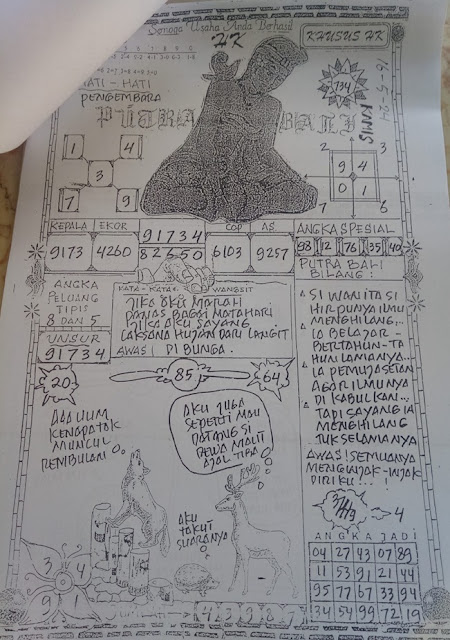 Semoga Usaha Anda Berhasil
HK
KHUSUS HK
HATI - HATI
PENGEMBARA
PUTRA BALI
734
16-5-024
KAMIS
1 4
3
7 9
2 3
9 4
0 1
7 6
KEPALA EKOR
9173 4260
91734
82650
COP AS
6103 9257
ANGKA SPESIAL
98 12 76 35 40
ANGKA
PELUANG
TIPIS
8 DAN 5
UNSUR
91734
KATA - KATA WANGSIT
JIKA AKU MARAH
PANAS BAGAI MATAHARI
JIKA AKU SAYANG
LAKSANA HUJAN DARI LANGIT
AWAS! DI BUNGA.
PUTRA BALI
BILANG:
SI WANITA SI
HIR PUNYA ILMU
MENGHILANG,..
IA BELAJAR -
BERTAHUN-TA
HUN LAMANYA...
IA PEMUJA SETAN
AGAR ILMUNYA
DI KABULKAN...
TAPI SAYANG IA
MENGHILANG
TUK SELAMANYA
AWAS! SEMUANYA
MENGINJAK-INJAK
DIRIKU...!
20
85
64
ADA UUM
KENAPA TAK
MUNCUL
REMBULAN
AKU JUGA
SEPERTI MAU
DATANG SI
DEWA MAUT
AJAL TIBA
AKU
TAKUT
SUARANYA
4
ANGKA JADI
04 27 43 07 89
11 53 91 21 44
95 77 67 33 94
34 54 99 72 19
3 4
9 1